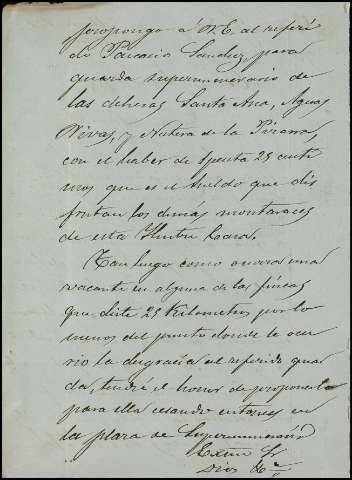 propongo á V.E. al referi
do Pascacio Sanchez, para
guarda supernumerario de
las dehesas Santa Ana, Aguas
Vivas, y de la Pizarra,
con el haber de 1 peseta 25 cénti
mos que es el sueldo que dis
frutan los demás montaraces
de esta Ilustre Casa.
Tan luego como ocurra una
vacante en alguna de las fincas
que diste 25 Kilometros por lo
menos del punto donde le ocu
rrio la desgracia al referido guar
da, tendré el honor de proponerlo
para ella cesando entonces en
la plaza de Supernumerario
Excmo Sr
Dios &ª